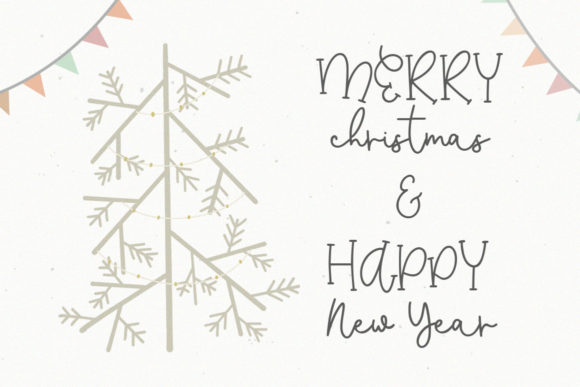 MERRY
christmas
&
HAPPY
New Year